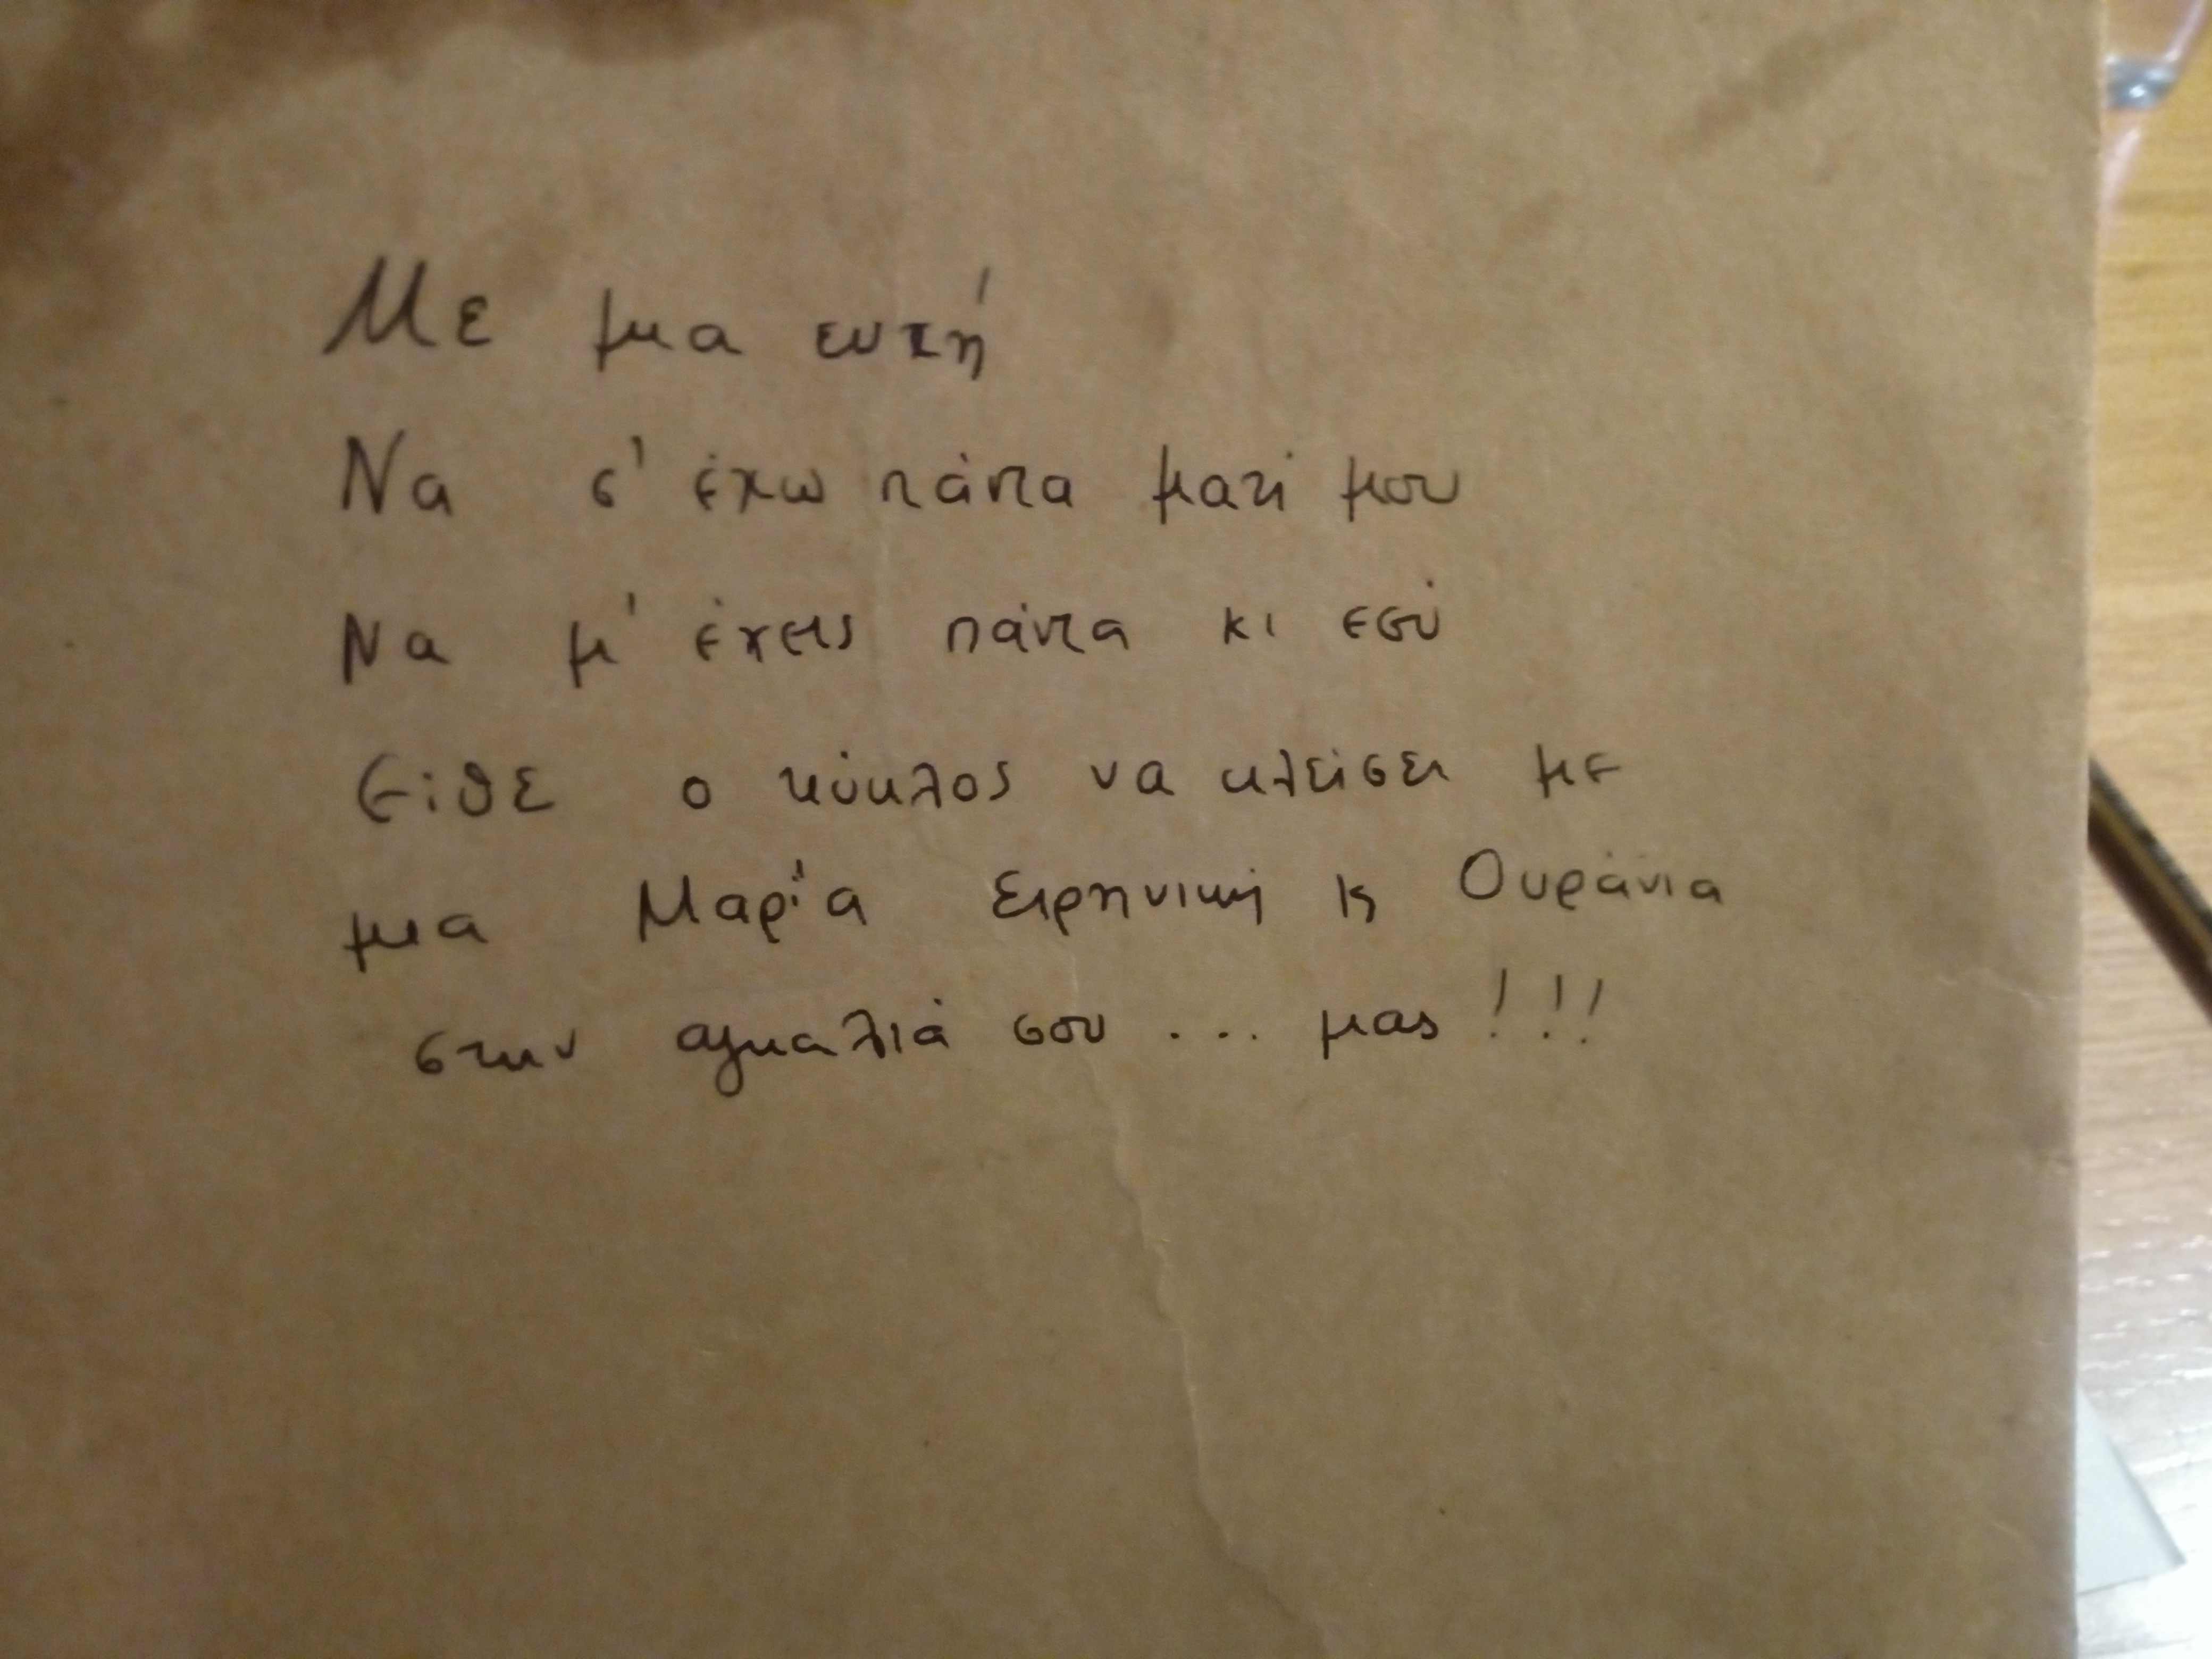 Με μια ευχή
Να σ' έχω πάντα μαζί μου
Να μ' έχεις πάντα κι εσύ
Είθε ο κύκλος να κλείσει με
μια Μαρία Ειρηνική κ Ουράνια
στην αγκαλιά σου... μας!!!